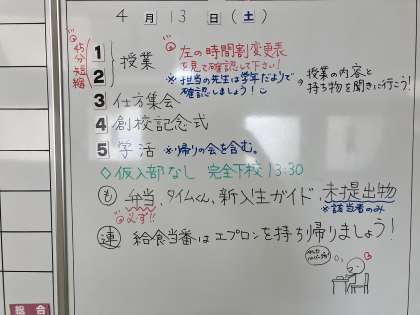 4月13日(土)
45分短縮
1
2
授業
左の時間割変更表
を見て確認して下さい!
※担当の先生は学年だよりで
確認しましょう!
→授業の内容と
持ち物を聞きに行こう!
3 仕方集会
4 創校記念式
5 学活 ※帰りの会を含む。
◇仮入部なし 完全下校13:30
も 弁当、タイムくん、新入生ガイド、未提出物
必ず!!
※該当者のみ
連 給食当番はエプロンを持ち帰りましょう!
総合